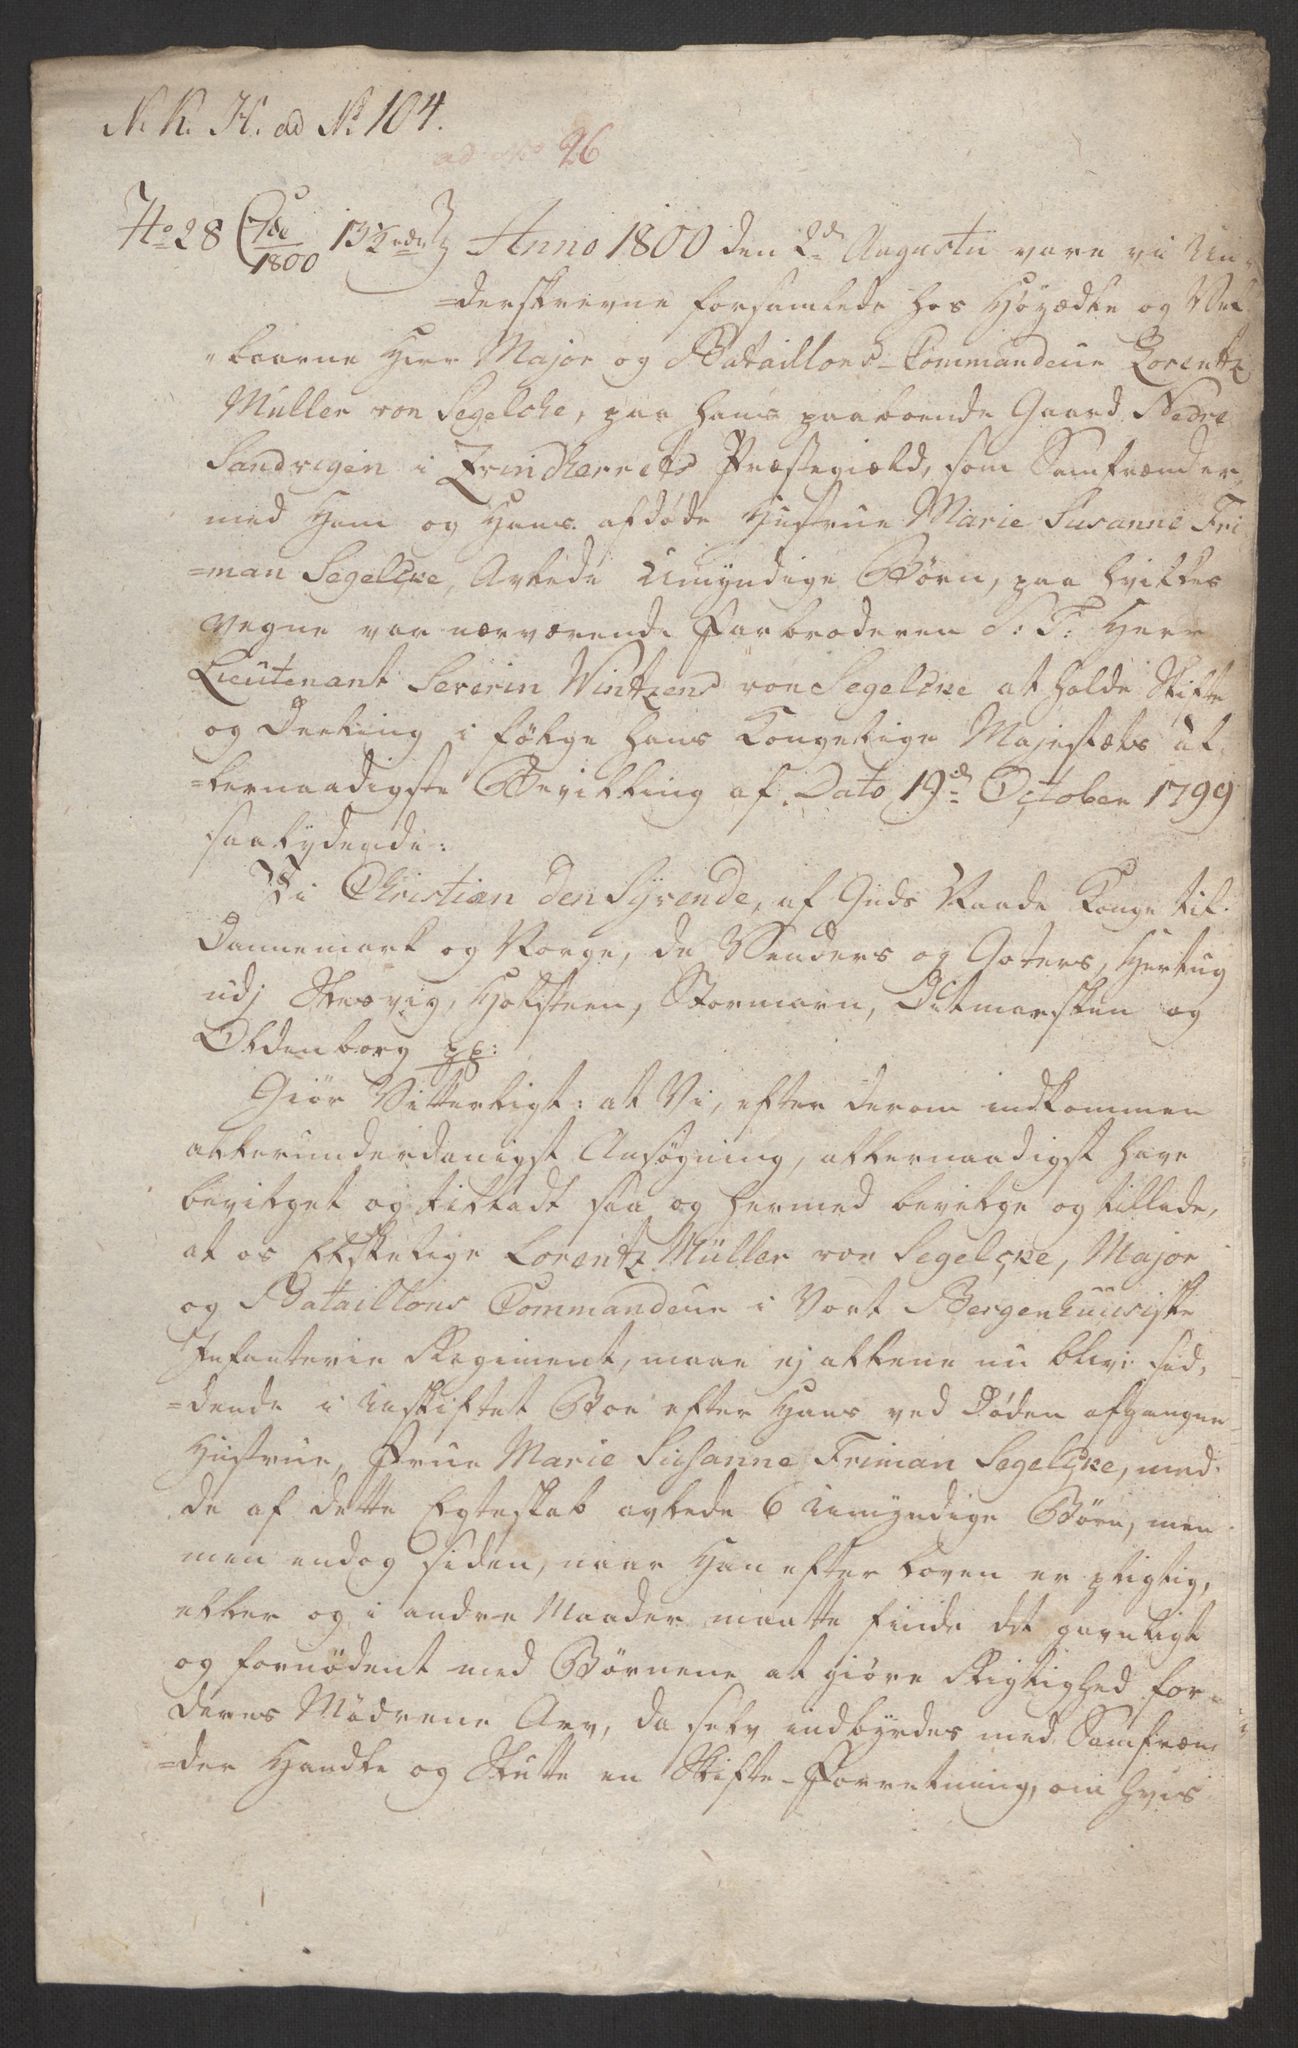 N. K. H. ad No 104.
ad No 26
No 28 1800 Anno 1800 den 2d Augustii vare vi Un-
=derskrevne forsamlede hos Höyædle og Vel-
-baarne Herr Major og Bataillons-Commandeur Lorentz
Müller von Segelcke, paa hans paaboende Gaard Nedre
Sandvigen i Trindherrets Præstegield, som Samfrænder,
med Ham og Hans afdøde Hustrue Marie Susanne Fri
=man Segelcke, Avlede Umyndige Børn, paa hvilkes
Vegne var nærværende Farbroderen S: T: Herr
Lieutenant Severin Vintzens von Segelcke at holde Skifte
og Deeling i følge hans Kongelige Majestæts al-
=lernaadigste Bevilling af Dato 19d October 1799
saalydende:
Vi Christian den Syvende, af Guds Naade Konge til
Dannemark og Norge, de Venders og Goters, Hertug
udj Slesvig, Holsteen, Stormarn, Ditmarsken og
Oldenborg pp:
Giör Vitterligt: at Vi, efter derom indkommen
allerunderdanigst Ansøgning, allernaadigst have
bevilget og tilladt saa og hermed bevilge og tillade,
at os Elskelige Lorentz Müller von Segelcke, Major
og Bataillons Commandeur i Vort Bergenhuusiske
Infanterie Regiment, maae ej allene nu blive sid-
=dende i uskiftet Boe efter Hans ved Døden afgangne
Hustrue, Frue Marie Susanne Friman Segelcke, med
de af dette Egteskab avlede 6 umyndige Børn, men
men endog siden, naar Han efter Loven er pligtig,
eller og i andre Maader maatte finde det gavnligt
og fornødent med Børnene at giöre Rigtighed for
deres Mødrene Arv, da selv indbyrdes med Samfræn
=der Handle og Slutte en Skifte-Forretning, om hvis